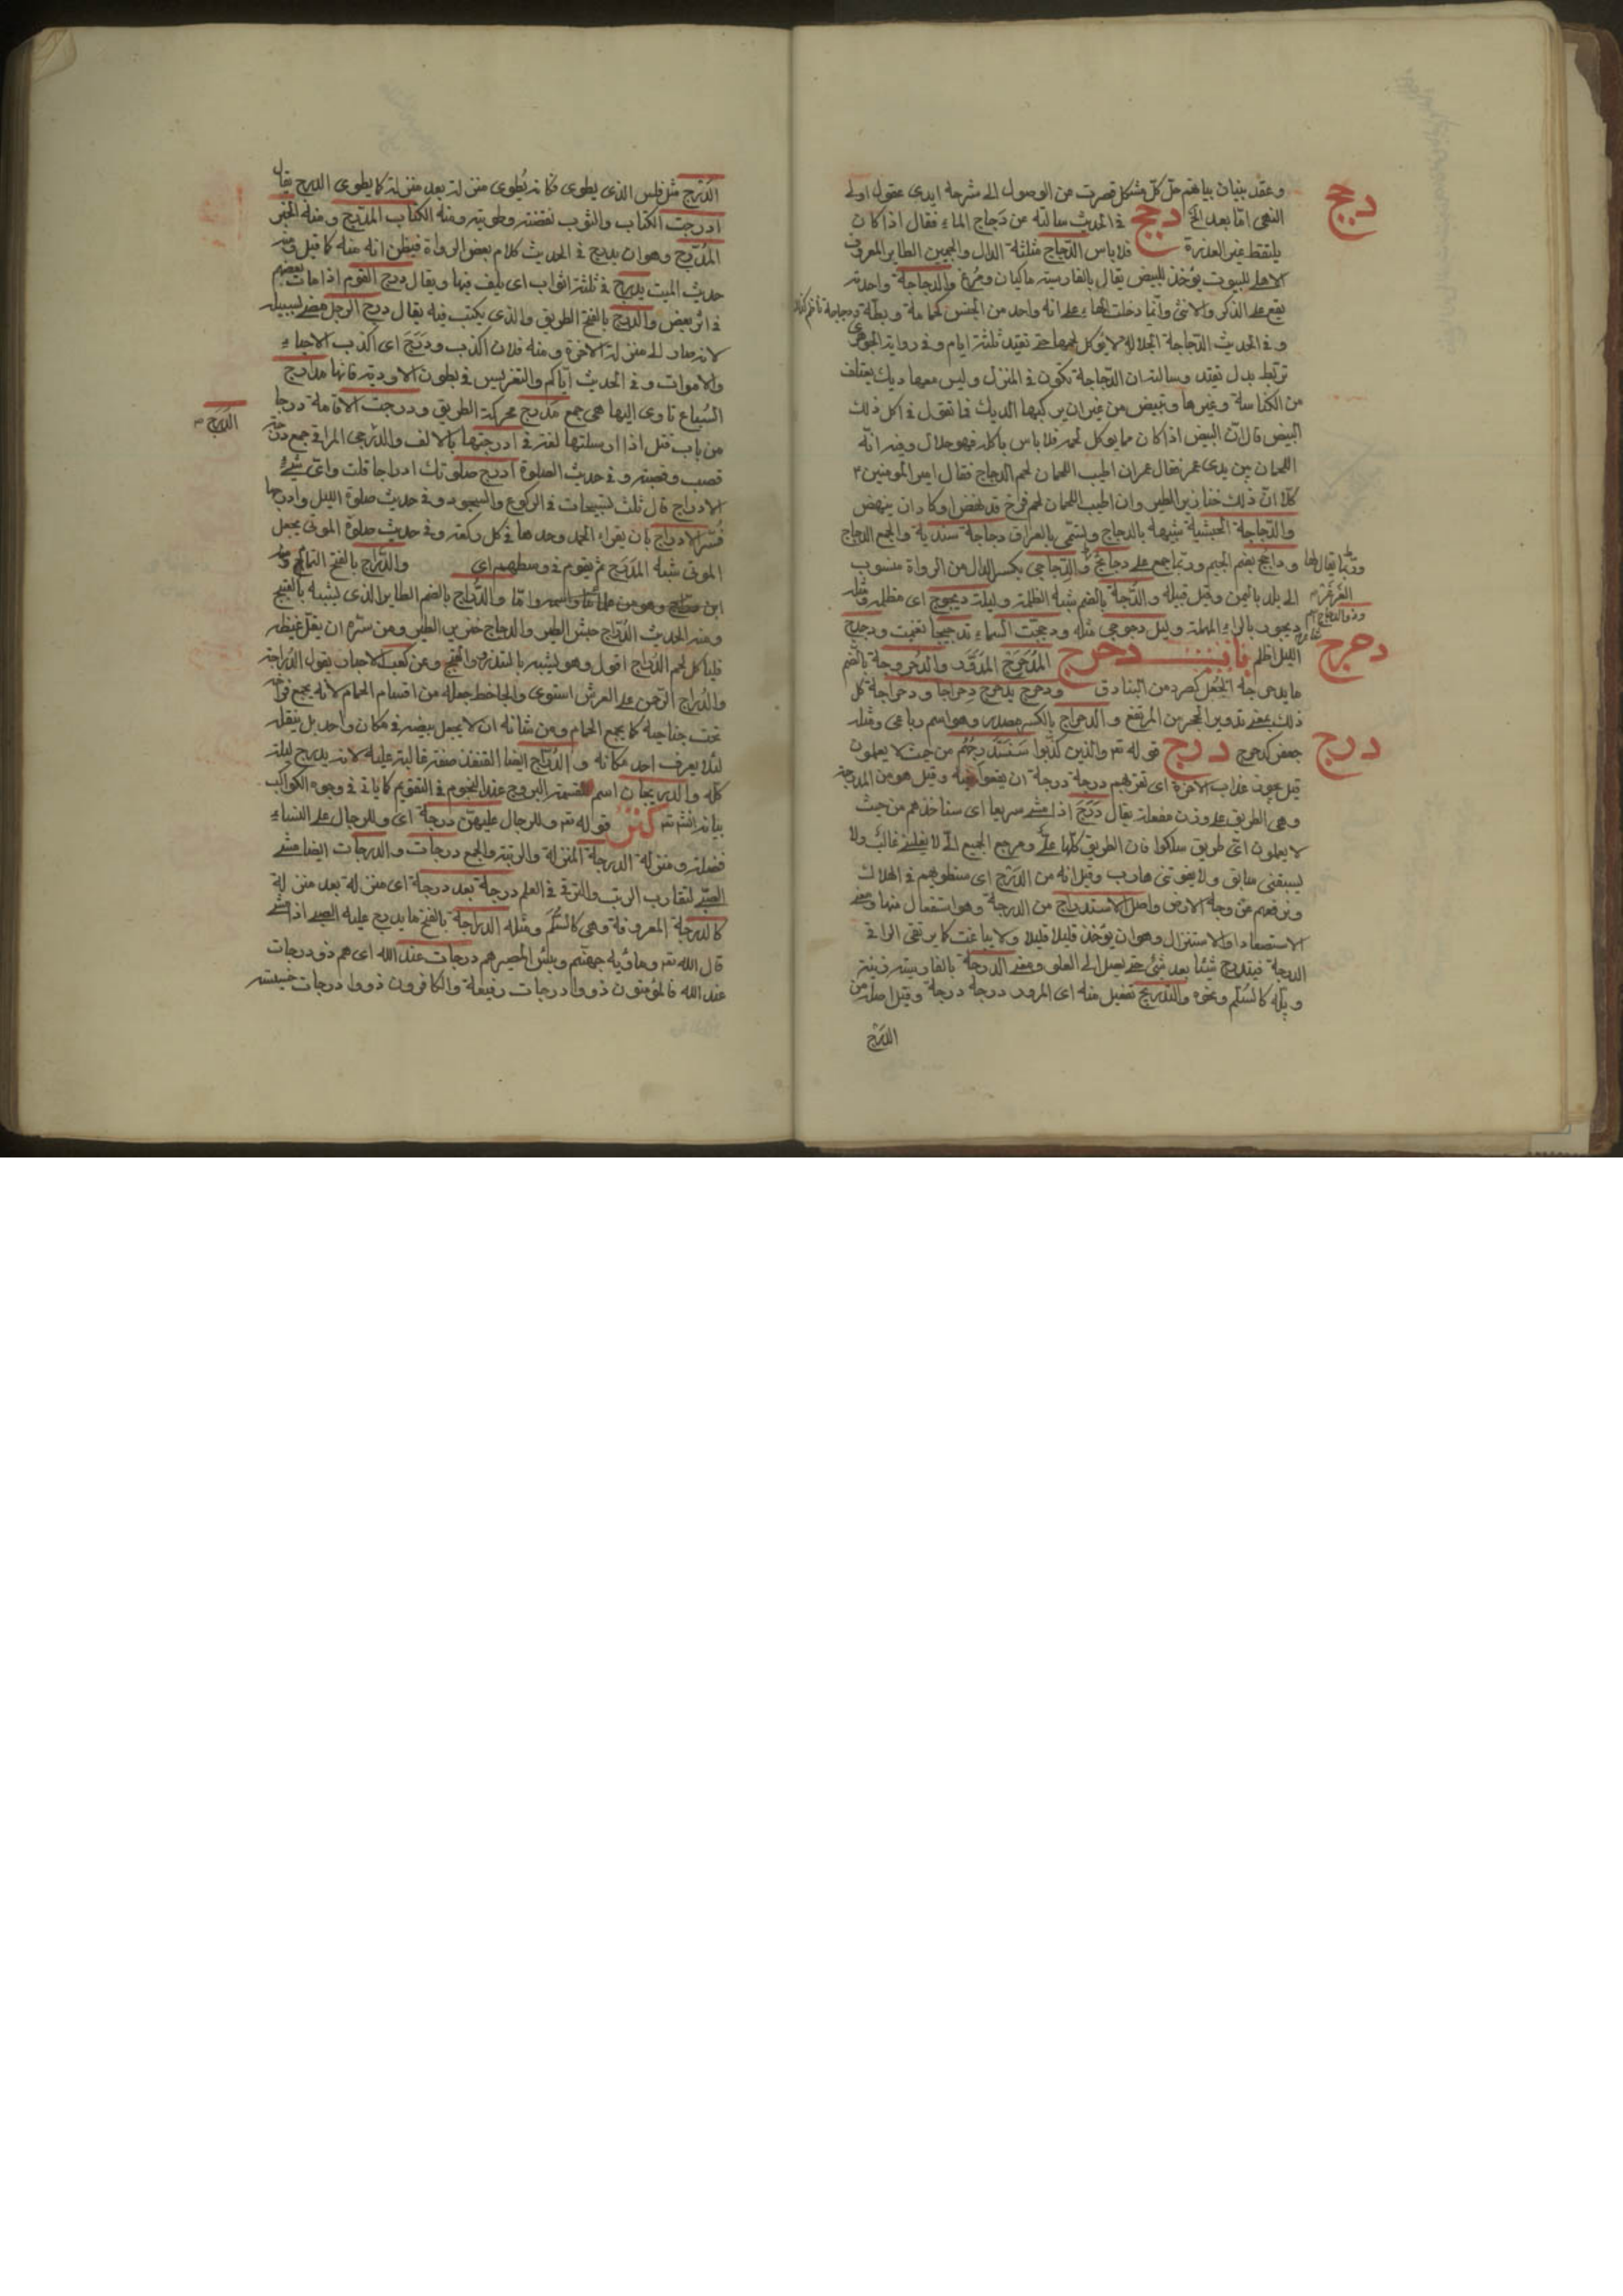 وعقد بنيان بيانهم حل كل مشكل قصرت من الوصول الى شرحه ايدى عقول اولى
النهى اما بعد دجج فى الحديث سالته عن دجاج الماء فقال اذا كان
يلتقط غير العذرة فلا باس الدجاج مثلثة الدال والجيمين الطاير المعروف
الاهلى للبيوت يؤخذ للبيض يقال بالفارسية ماكيان ومرغ والدجاجة واحدته
يقع على الذكر والانثى وانما دخلت الهاء على انه واحد من الجنس كحمامة وبطة
وفى الحديث الدجاجة الجلالة لا يؤكل لحمها حتى تقيد ثلثة ايام وفى رواية الجوهرى
تربط بدل تقيد وسالته ان الدجاجة تكون فى المنزل وليس معها ديك يعتلف
من الكناسة وغيرها وتبيض من غير ان يركبها الديك فما تقول فى اكل ذلك
البيض قال ان البيض اذا كان مما يوكل لحمه فلا باس باكله فهو حلال وفيه انه
اللحمان بين يدى عمر فقال عمر ان اطيب اللحمان لحم الدجاج فقال امير المومنين ع
كلا ان ذلك خنازير الطير وان اطيب اللحمان لحم فرخ قد نهض او كاد ان ينهض
والدجاجة الحبشية شبيهة بالدجاج وتسمى بالعراق دجاجة سندية والجمع الدجاج
ودجج بضم الجيم وربما جمع على دجائج والدجاجى بكسر الدال من الرواة منسوب
الى بلد باليمن وقيل قبيلة والدجة بالضم شدة الظلمة وليلة ديجوج اى مظلمة ومثله
ديجور بالراء المهملة وليل دجوجى مثله ودججت السماء تدجيجا تغيمت ودجج
الليل اظلم دحرج المدحرج المدور والدحروجة بالضم
ما يدحرجه الجعل كصرد من البنادق ودحرج يدحرج دحراجا ودحراجة كل
ذلك بمعنى تدوير الحجر من المرتفع والدحراج بالكسر مصدر وهو اسم رباعى ومثله
جعفر كدحرج درج قوله تم والذين كذبوا سنستدرجهم من حيث لا يعلمون
عذاب الاخرة اى نقربهم درجة درجة ان يقعوا فيه وقيل هو من المدرجة
وهى الطريق على وزن مفعلة يقال درج اذا مشى سريعا اى سناخذهم من حيث
لا يعلمون اى طريق سلكوا فان الطريق كلها على ومرجع الجميع الى لا يغلبنى غالب ولا
يسبقنى سابق ولا يفوتنى هارب وقيل انه من الدرج اى سنطويهم فى الهلاك
ونرفعهم عن وجه الارض واصل الاستدراج من الدرجة وهو استفعال منها ومعنى
الاستصعاد او الاستنزال وهو ان يؤخذ قليلا قليلا ولا يباغت كما يرتقى الراقى
الدرجة فيتدرج شيئا بعد شئ حتى يصل الى العلو ومعنى الدرجة بالفارسية
وپله كالسلم ونحوه والتدريج تفعيل منه اى المرور درجة درجة وقيل اصله من
الدرج
دجج
دحرج
درج
الدرج مثل فلس الذى يطوى فكانه يطوى منزلة بعد منزلة كما يطوى الدرج يقال
ادرجت الكتاب والثوب وطويته ومنه الكتاب المدرج ومنه الخبر
المدرج وهو ان يدرج فى الحديث كلام بعض الرواة فيظن انه منه كما قيل ومنه
حديث الميت يدرج فى ثلثة اثواب اى يلف فيها ويقال درج القوم اذا مات بعضهم
فى اثر بعض والدرج بالفتح الطريق والذى يكتب فيه يقال درج الرجل مضى لسبيله
لانه صار الى منزلة الاخرة ومنه فلان اكذب من دب ودرج اى اكذب الاحياء
والاموات وفى الحديث اياكم والتغريس فى بطون الاودية فانها مدارج
السباع تاوى اليها هى جمع مدرج محركة الطريق ودرجت الاقامة درجا
من باب قتل اذا ارسلتها لغة فى ادرجتها بالالف والدرج المراقى جمع درجة
قصب وقصبة وفى حديث الصلوة ادرج صلوتك ادراجا قلت واى شئ
الادراج قال ثلث تسبيحات فى الركوع والسجود وفى حديث صلوة الليل وادرجها
فسر الادراج بان يقراء الحمد وحدها فى كل ركعة وفى حديث صلوة الموتى يجعل
الموتى شبه المدرج ثم يقوم فى وسطهم والدراج بالفتح النمام
والدراج بالضم الطاير الذى يشبه بالقبج
ومنه الحديث الدراج حبش الطير والدجاج خنزير الطير ومن سره ان يقل غيظه
فلياكل لحم الدراج اقول وهو يشبه بالتدرو والقبج وعن كعب الاحبار يقول الدراجة
والدراج الرحمن على العرش استوى والجاحظ جعله من اقسام الحمام لانه يجمع فراخه
تحت جناحيه كما يجمع الحمام ومن شانه ان لا يجعل بيضه فى مكان واحد بل ينقله
لئلا يعرف احد مكانه والدراج ايضا القنفذ صفة غالبة عليه لانه يدرج ليلته
كله والدريجان اسم لقسمة البروج عند المنجوم فى التقويم كما ياتى فى وجوه الكواكب
بيانه كنز قوله تم وللرجال عليهن درجة اى وللرجال على النساء
فضلة ومنزلة الدرجة المنزلة والرتبة والجمع درجات والدرجات ايضا مشى
الصبى لتقارب الرتب والترقى فى العلم درجة بعد درجة اى منزلة بعد منزلة
كالدرجة المعروفة وهى كالسلم ومثله الدراجة بالفتح ما يدرج عليه الصبى اذا مشى
قال الله تم وماويه جهنم وبئس المصير هم درجات عند الله اى هم ذو درجات
عند الله فالمؤمنون ذووا درجات رفيعة والكافرون ذووا درجات خسيسة
الدرج